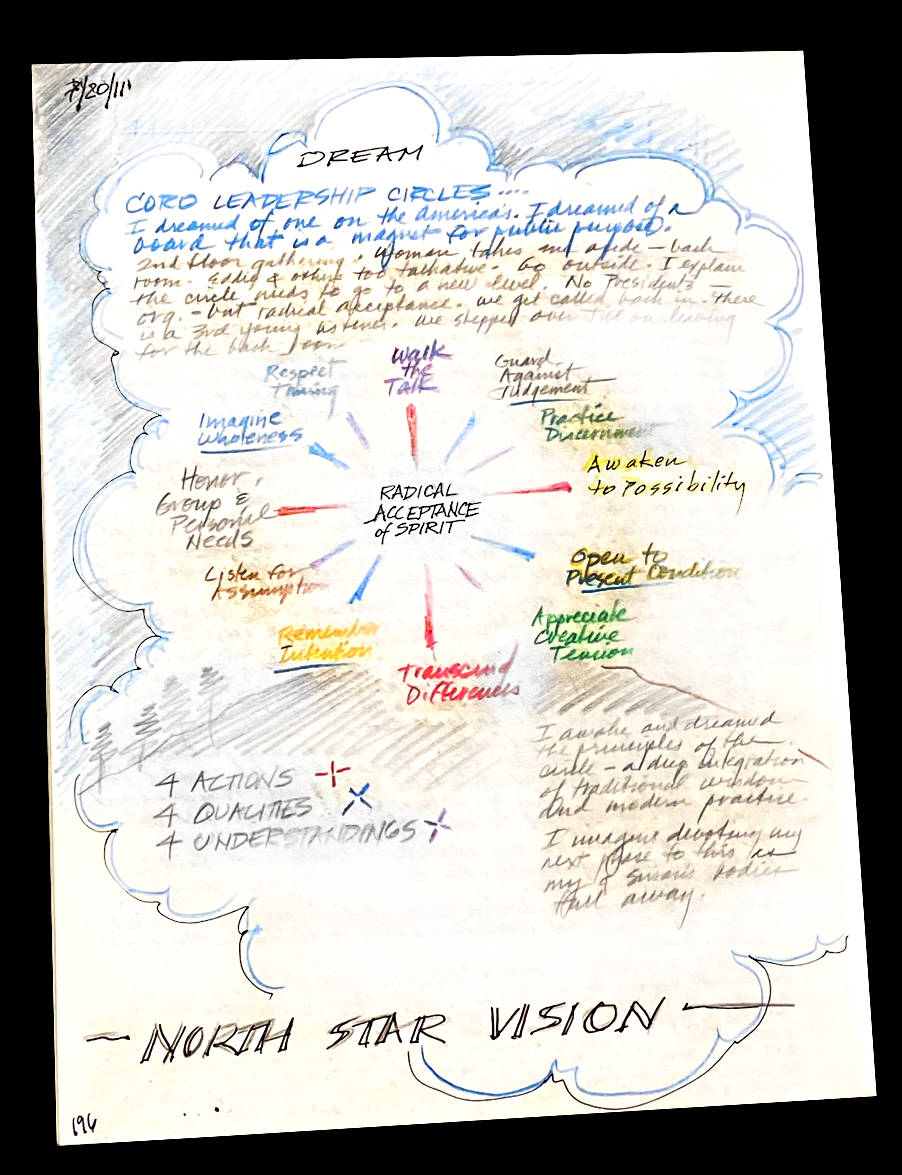 /20/11
DREAM
CORO LEADERSHIP CIRCLES....
I dreamed of one on the Americas. I dreamed of a
board that is a magnet for public purpose.
2nd floor gathering. Woman takes me aside – back
room. Eddie & others too talkative. Go outside. I explain
the circle needs to go to a new level. No Presidents –
org. – but radical acceptance. We get called back in. There
is a 3rd young listener. We stepped over on leaving
for the back room
Respect
Timing
Walk
the
Talk
Guard
Against
Judgement
Imagine
Wholeness
Practice
Discernment
Awaken
to Possibility
Honor
Group &
Personal
Needs
RADICAL
ACCEPTANCE
of SPIRIT
Listen for
Assumption
Open to
Present Condition
Remember
Intention
Appreciate
Creative
Tension
Transcend
Differences
I awake and dreamed
the principles of the
circle – a deep integration
of traditional wisdom
and modern practice.
4 ACTIONS
4 QUALITIES
4 UNDERSTANDINGS
I imagine devoting my
next phase to this as
my & Susan's bodies
fall away.
– NORTH STAR VISION –
196